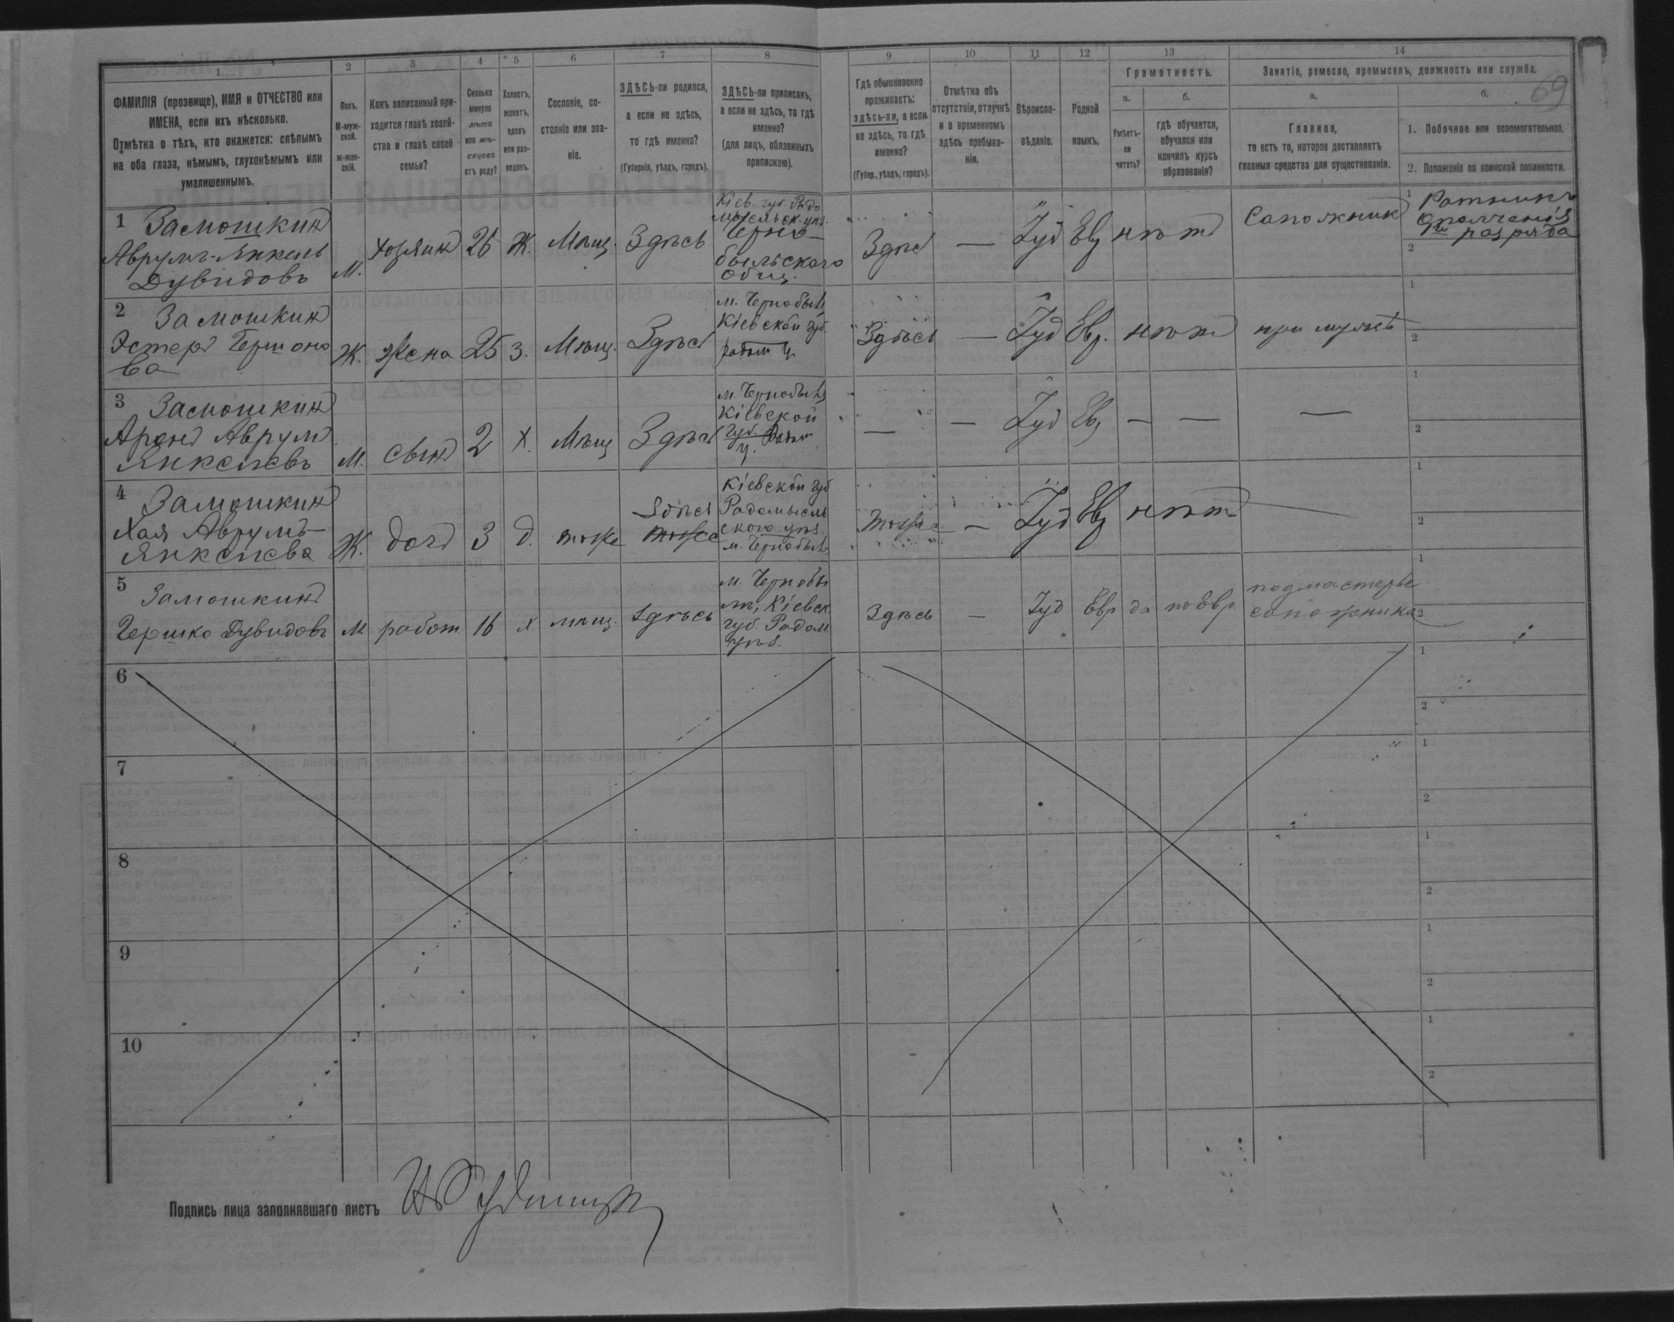 69
1 2 3 4 5 6 7 8 9 10 11 12 13 14
ФАМИЛІЯ (прозвище), ИМЯ и ОТЧЕСТВО или
ИМЕНА, если ихъ нѣсколько.
Отмѣтка о тѣхъ, кто окажется: слѣпымъ
на оба глаза, нѣмымъ, глухонѣмымъ или
умалишеннымъ.
Полъ.
М-муж-
ской.
ж-жен-
скій.
Какъ записанный при-
ходится главѣ хозяй-
ства и главѣ своей
семьи?
Сколько
минуло
лѣтъ
или мѣ-
сяцевъ
отъ роду?
Холостъ,
женатъ,
вдовъ
или раз-
веденъ.
Сословіе, со-
стояніе или зва-
ніе.
ЗДѢСЬ-ли родился,
а если не здѣсь,
то гдѣ именно?
(Губернія, уѣздъ, городъ).
ЗДѢСЬ-ли приписанъ,
а если не здѣсь, то гдѣ
именно?
(для лицъ, обязанныхъ
припискою).
Гдѣ обыкновенно
проживаетъ:
здѣсь-ли, а если
не здѣсь, то гдѣ
именно?
(Губер., уѣздъ, городъ).
Отмѣтка объ
отсутствіи, отлучкѣ
и о временномъ
здѣсь пребыва-
ніи.
Вѣроиспо-
вѣданіе.
Родной
языкъ.
Грамотность.
а.
Умѣетъ-
ли
читать?
б.
гдѣ обучается,
обучался или
кончилъ курсъ
образованія?
Занятіе, ремесло, промыселъ, должность или служба.
а.
Главное,
то есть то, которое доставляетъ
главныя средства для существованія.
б.
1. Побочное или вспомогательное.
2. Положеніе по воинской повинности.
1 Замошкинъ
Аврумъ-Янкель
Дувидовъ
М.
хозяинъ
26
Ж.
Мѣщ.
Здѣсь
Кіев. губ. Радо
мысльск. уѣз.
Черно-
быльского
Общ.
Здѣсь
—
Іуд
Евр
нѣтъ
Сапожникъ
1 Ратникъ
ополченія
1го разряда
2
2 Замошкинъ
Эстеръ Гершоно
ва
Ж.
жена
25
З.
Мѣщ.
Здѣсь
м. Чернобыль
Кіевской губ.
Радом у.
Здѣсь
—
Іуд
Евр.
нѣтъ
при мужѣ
1
2
3 Замошкинъ
Аронъ Аврум
Янкелевъ
М.
сынъ
2
Х.
Мѣщ
Здѣсь
м. Чернобыль
Кіевской
губ. Радом
у.
—
—
Іуд
Евр
—
—
—
1
2
4 Замошкинъ
Хая Аврумъ-
Янкелева
Ж.
дочь
3
д.
тоже
Здѣсь
тоже
Кіевской губ
Радомысль
ского уѣз
м. Чернобыль
тоже
—
Іуд
Евр
нѣтъ
1
2
5 Замошкинъ
Гершко Дувидовъ
М.
работ
16
х
мѣщ.
Здѣсь
м. Чернобы
ль, Кіевск.
губ. Радом
уѣз.
Здѣсь
—
Іуд
Евр
да
по Евр.
подмастерье
сапожника
1
2
6
1
2
7
1
2
8
1
2
9
1
2
10
1
2
Подпись лица заполнявшаго листъ